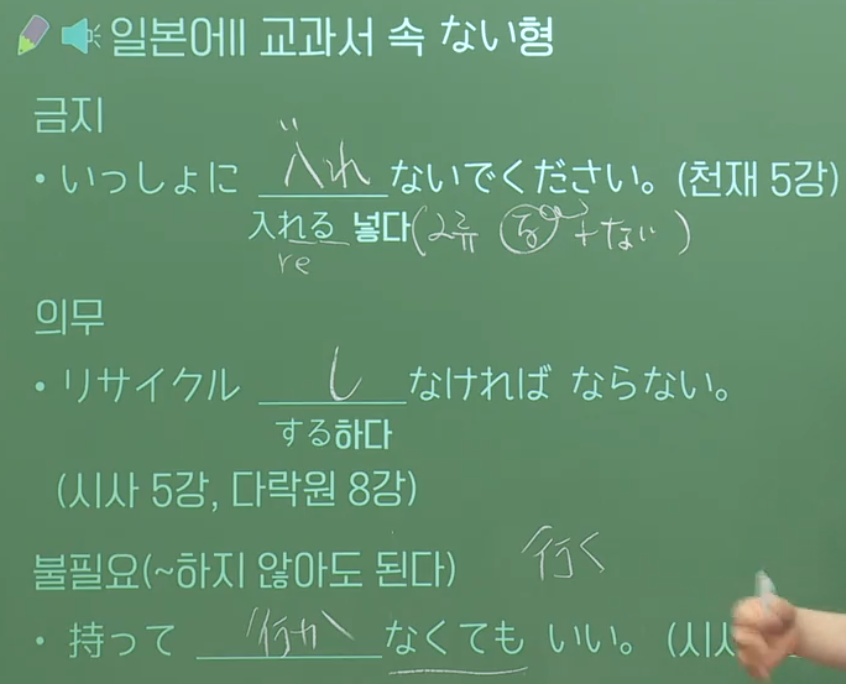 일본어II 교과서 속 ない형
금지
• いっしょに 入れ ないでください。(천재 5강)
入れる 넣다(2류 る+ない)
re
의무
• リサイクル し なければ ならない。
する하다
(시사 5강, 다락원 8강)
불필요(~하지 않아도 된다) 行く
• 持って 行か なくても いい。(시사